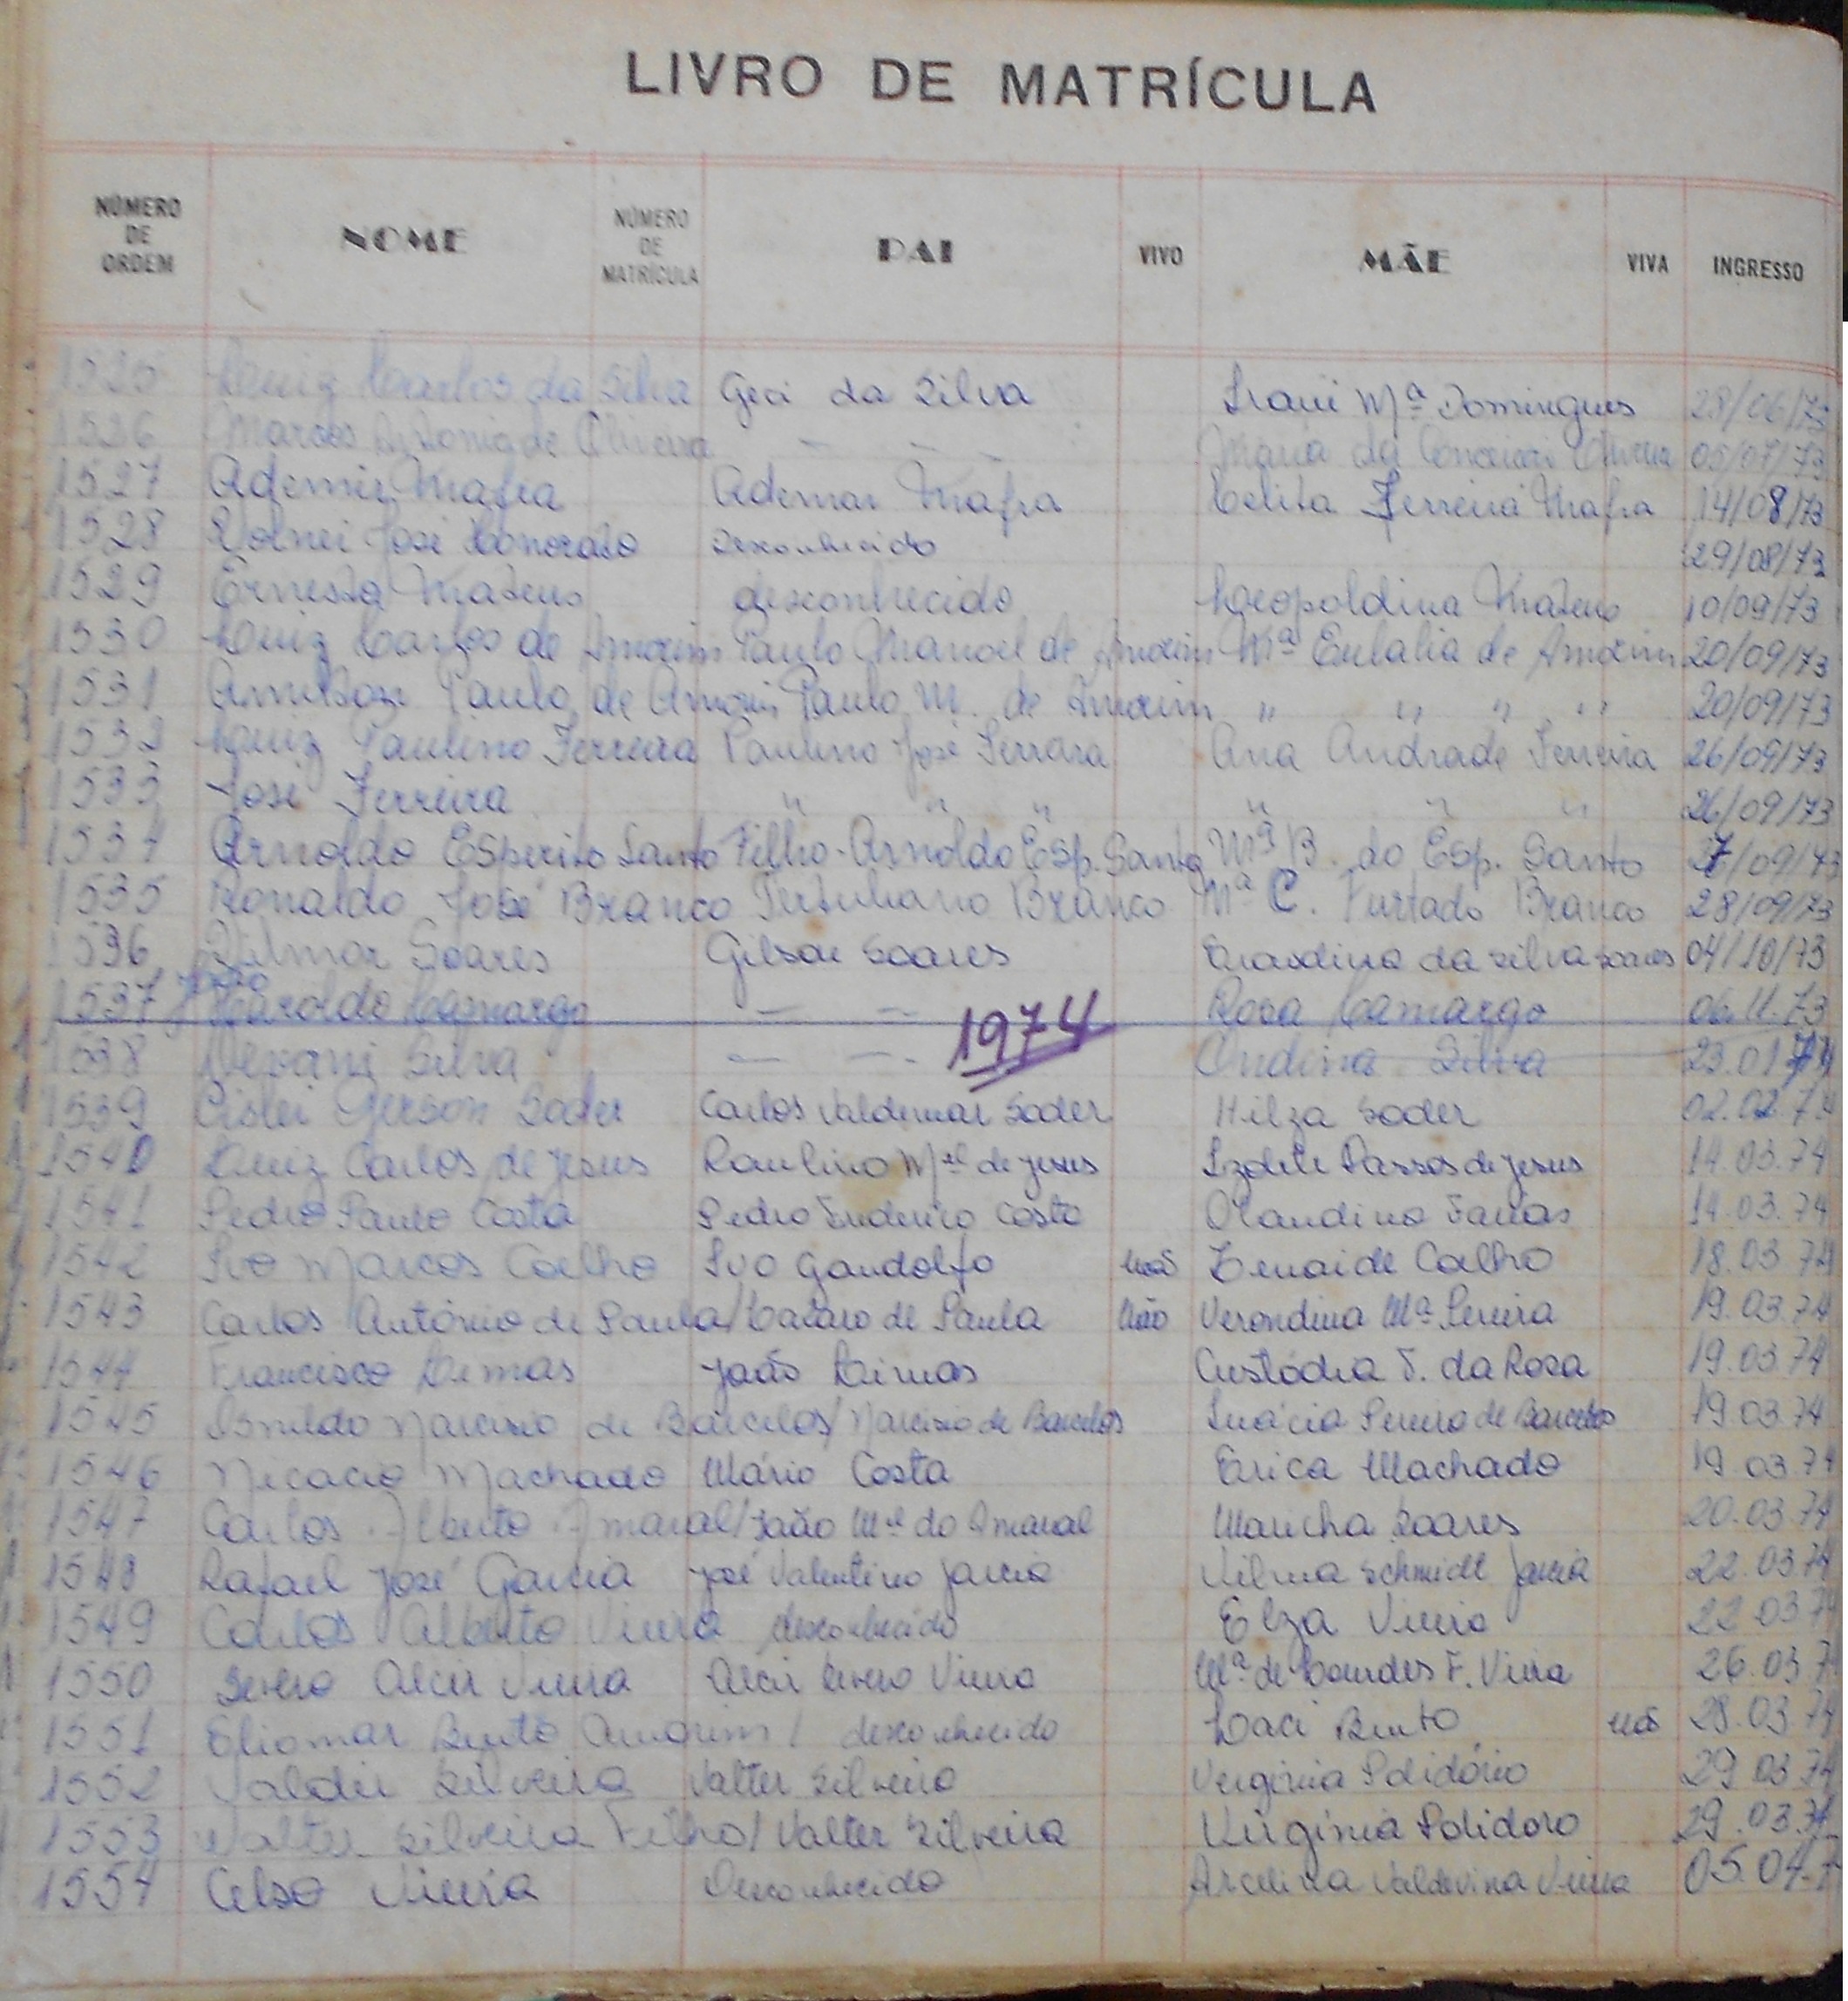 LIVRO DE MATRÍCULA
NÚMERO DE ORDEM NOME NÚMERO DE MATRÍCULA PAI VIVO MÃE VIVA INGRESSO
1525 Luiz Carlos da Silva Geci da Silva Iraui Mª Domingues 28/06/73
1526 Marcos Antonio de Oliveira — — — Maria da Oliveira 05/07/73
1527 Ademir Mafra Ademar Mafra Celita Ferreira Mafra 14/08/73
1528 Volnei José Honorato Desconhecido 29/08/73
1529 Ernesto Mateus desconhecido Leopoldina Mateus 10/09/73
1530 Luiz Carlos de Amorim Paulo Manoel de Amorim Mª Eulalia de Amorim 20/09/73
1531 Amilson Paulo de Amorim Paulo M. de Amorim " " " " 20/09/73
1532 Luiz Paulino Ferreira Paulino José Ferrara Ana Andrade Ferreira 26/09/73
1533 José Ferreira " " " " " " 26/09/73
1534 Arnoldo Esperito Santo Filho - Arnoldo Esp. Santo Mª B. do Esp. Santo 27/09/73
1535 Ronaldo José Branco Tertuliano Branco Mª C. Furtado Branco 28/09/73
1536 Vilmar Soares Gilson Soares da Silva Soares 04/10/73
1537 João Haroldo Camargo — — Rosa Camargo 06.11.73
1974
1538 Silva — — Ondina Silva 23.01.74
1539 Cislei Gerson Soder Carlos Valdemar Soder Hilza Soder 02.02.74
1540 Luiz Carlos de Jesus Raulino Mel de Jesus Izolete Passos de Jesus 14.03.74
1541 Pedro Paulo Costa Pedro Frederico Costa Olandina Farias 14.03.74
1542 Ivo Marcos Coelho Ivo Gandolfo não Zenaide Coelho 18.03.74
1543 Carlos Antônio de Paula / Catario de Paula não Verondina Mª Pereira 19.03.74
1544 Francisco Dimas João Dimas Custódia F. da Rosa 19.03.74
1545 Osnildo Narcizio de Barcelos / Narcizio de Barcelos Inácia Pereira de Barcelos 19.03.74
1546 Nicacio Machado Mário Costa Erica Machado 19.03.74
1547 Carlos Alberto Amaral / João Mel do Amaral Maricha Soares 20.03.74
1548 Rafael José Garcia José Valentino Garcia Vilma Schmidt Garcia 22.03.74
1549 Carlos Alberto Vieira desconhecido Elza Vieira 22.03.74
1550 Severo Alcir Vieira Alcir Severo Vieira Mª de Lourdes F. Vieira 26.03.7
1551 Eliomar Bento Amorim / desconhecido Laci Bento não 28.03.74
1552 Valdir Silveira Valter Silveira Verginia Polidório 29.03.74
1553 Walter Silveira Filho / Valter Silveira Virgínia Polidoro 29.03.74
1554 Celso Vieira Desconhecido Arcelina Valdivina Vieira 05.04.7